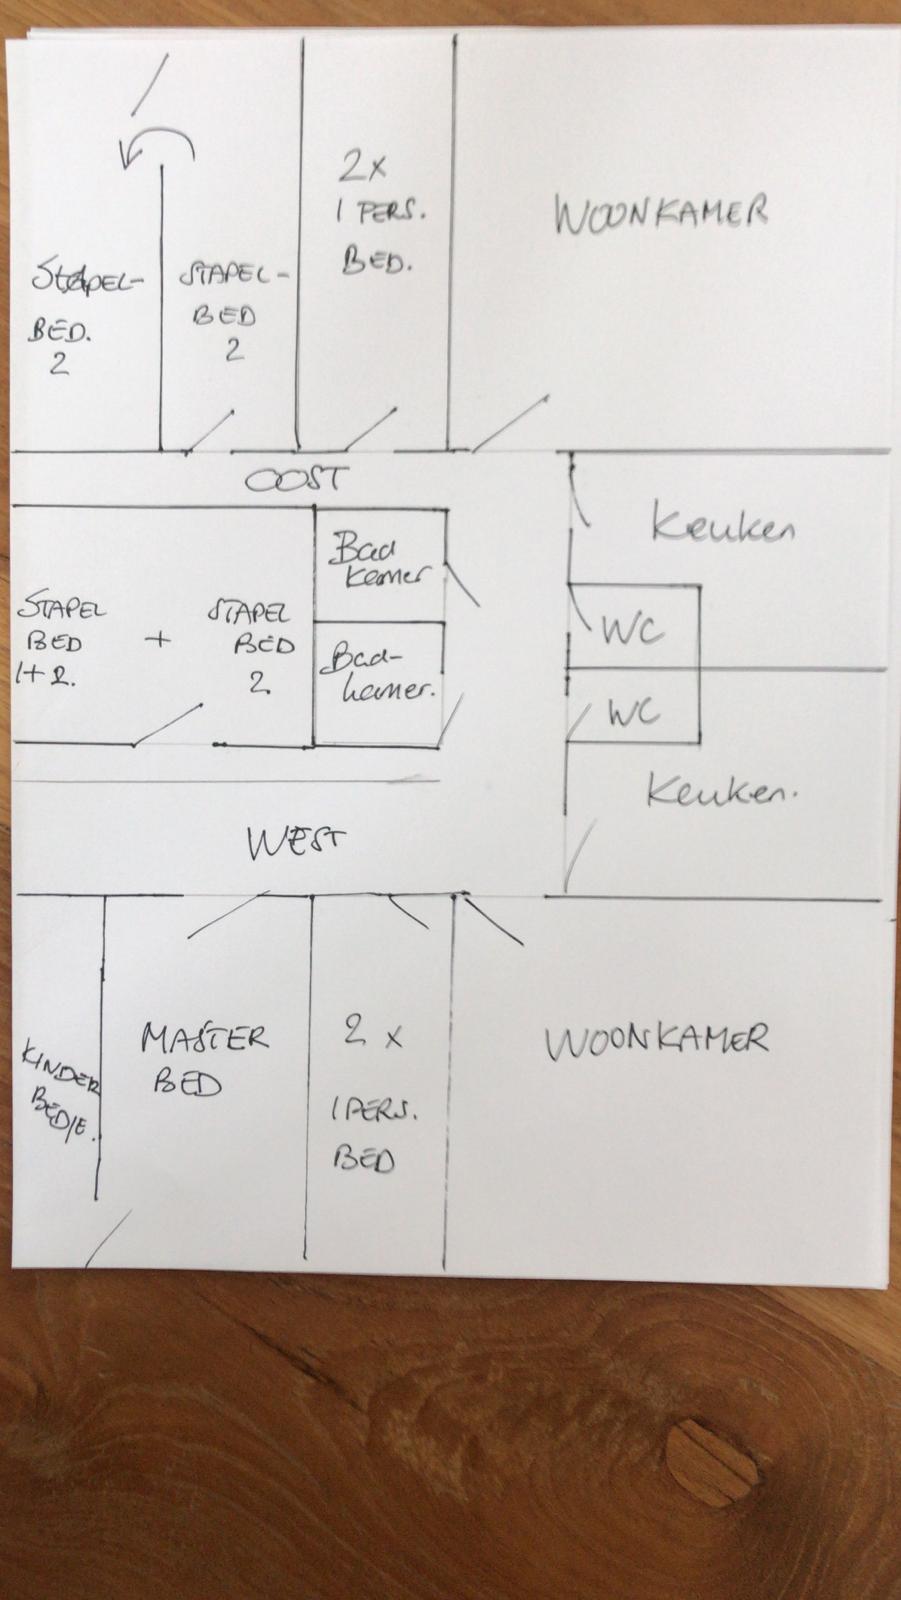 2x
1 PERS.
BED.
WOONKAMER
Stapel-
BED.
2
STAPEL-
BED
2
OOST
Keuken
Bad
kamer
STAPEL
BED
1+2.
+
STAPEL
BED
2.
WC
Bad-
kamer.
WC
Keuken.
WEST
KINDER
BEDJE.
MASTER
BED
2 x
1 PERS.
BED
WOONKAMER